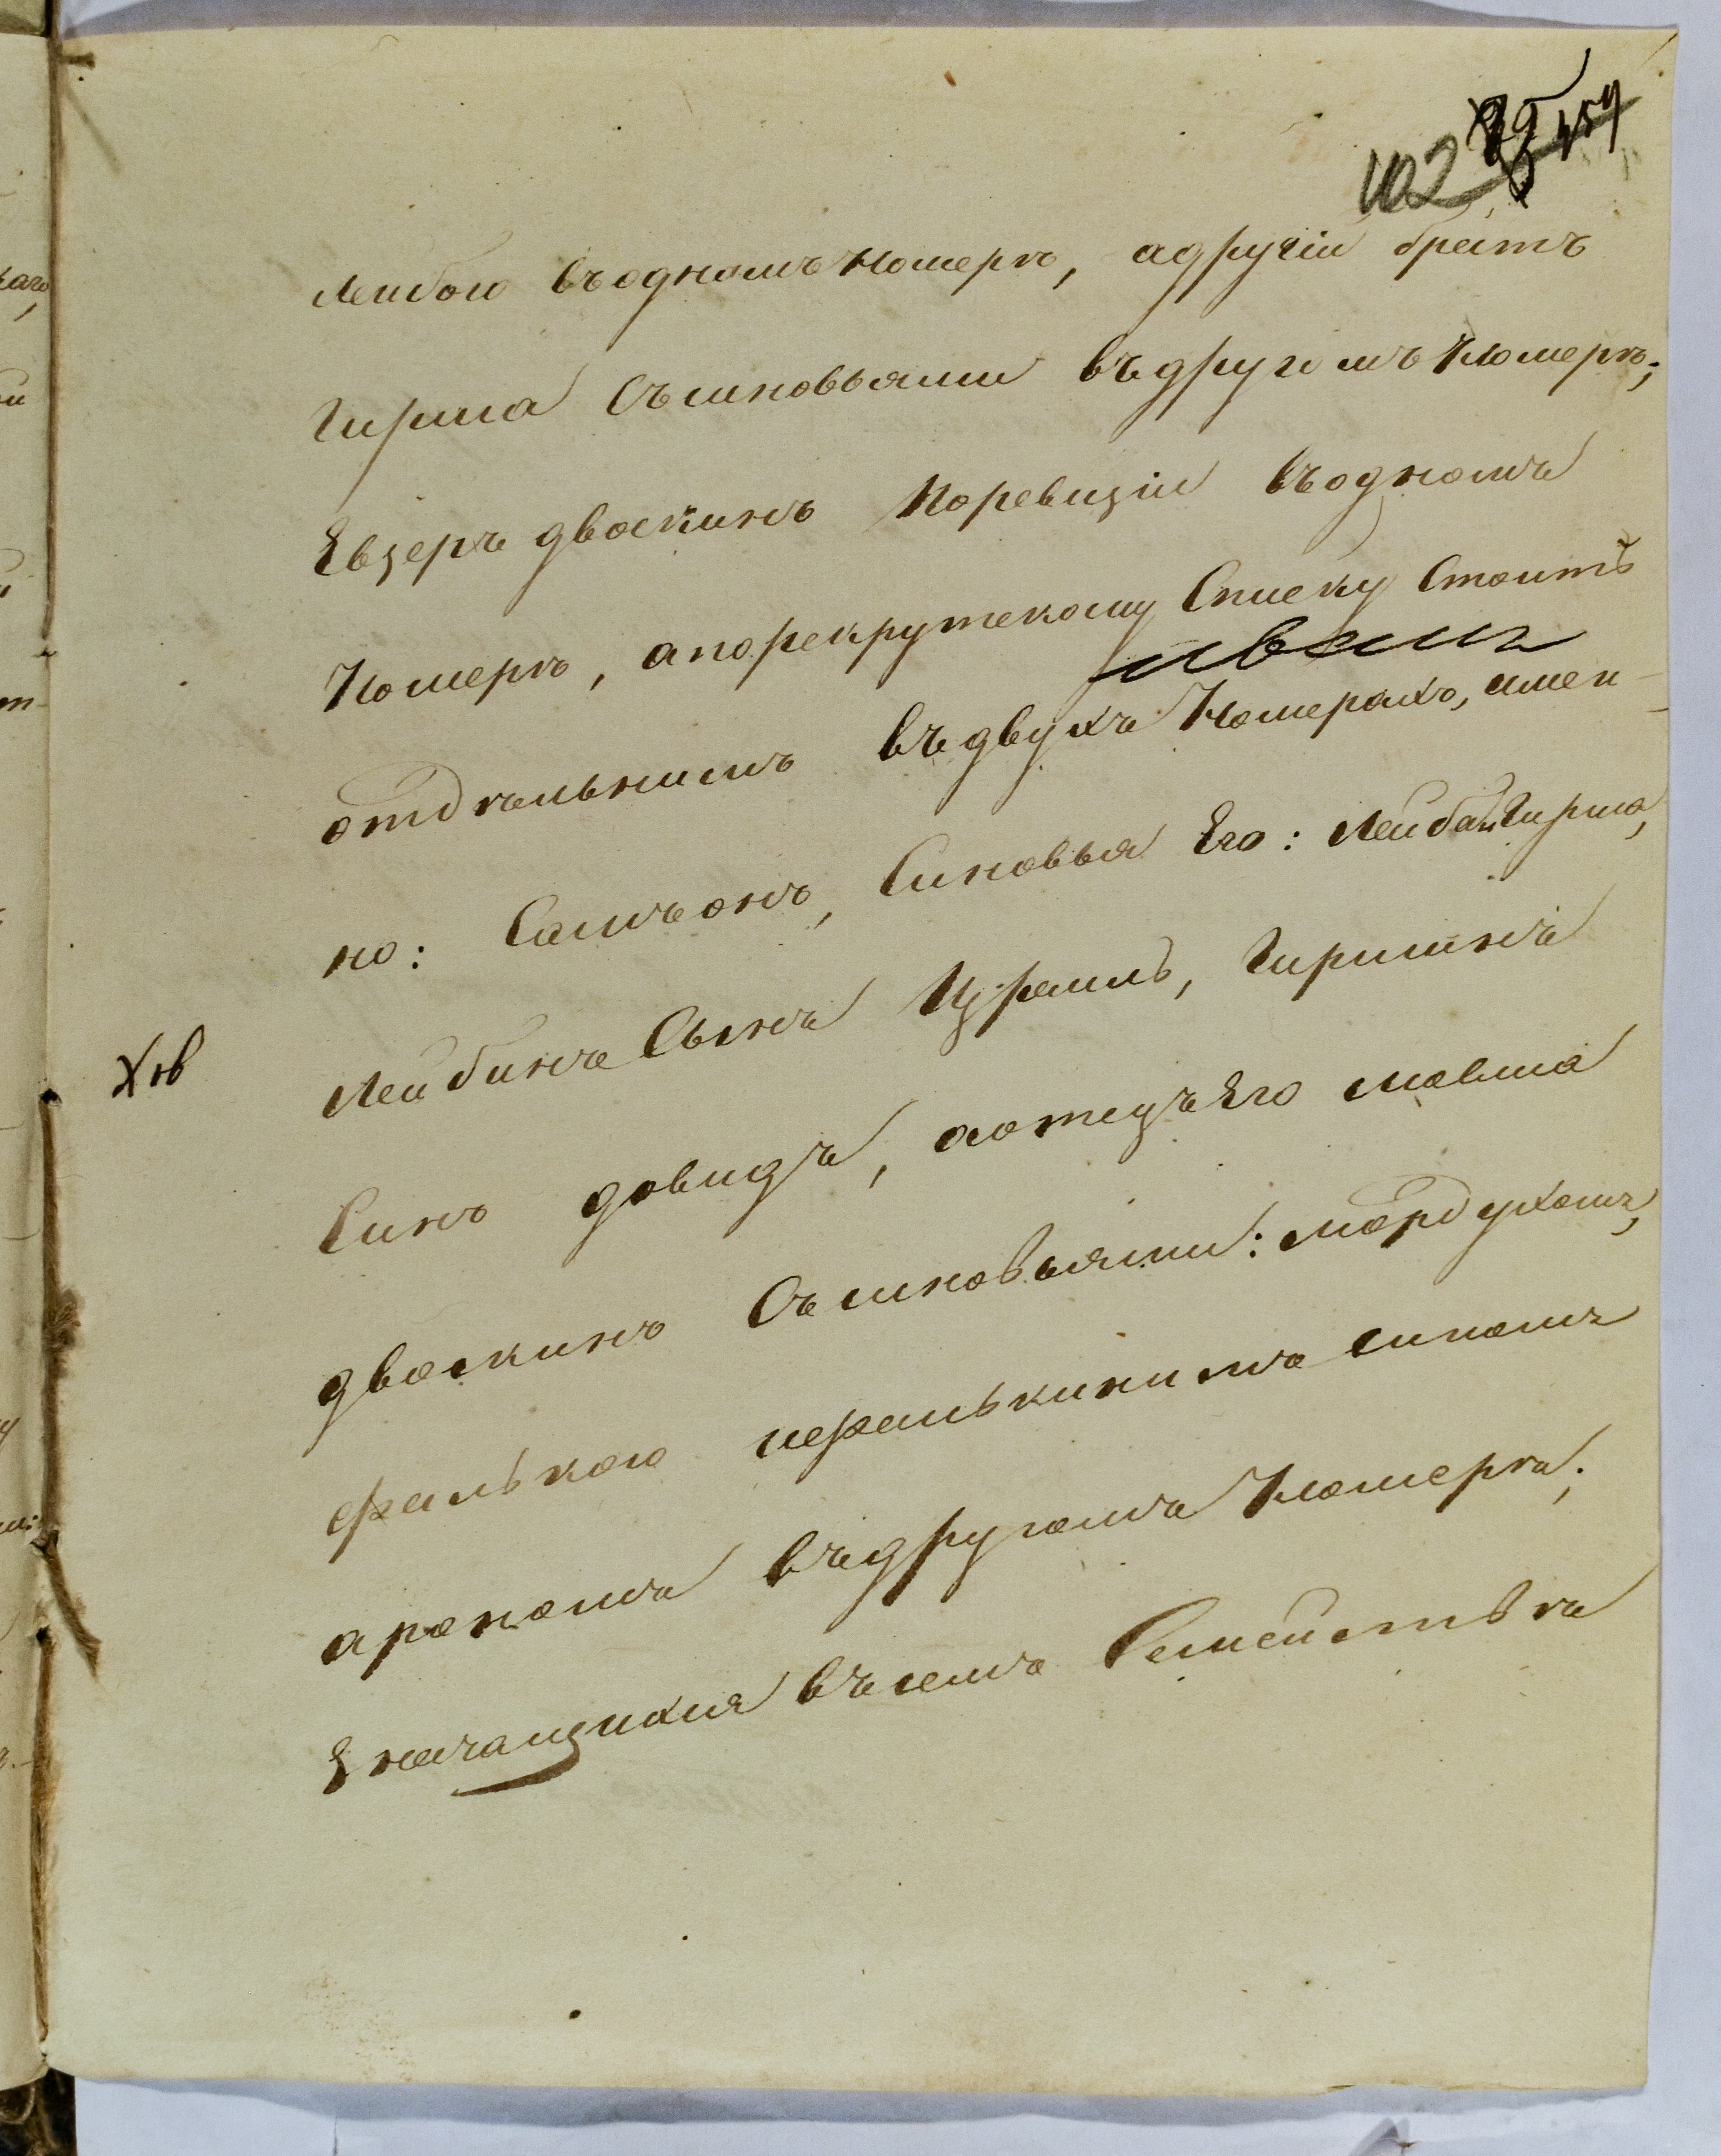 102
Лейбою въ одномъ номерѣ, а другій братъ
Гирша съ синовьями въ другомъ номерѣ;
Евзеръ двоскинъ по ревизіи въ одномъ
номерѣ, а по рекрутскому списку стоитъ
отдѣльнимъ въ двухъ номерахъ, имен-
но: Самъ онъ, Синовья Его: Лейба и Гирша,
Лейбинъ Сынъ Израиль, Гиршинъ
Синъ довидъ, а отецъ Его мовша
двоскинъ Съ синовьями: мордухомъ,
фалькою и фалькинимъ синомъ
арономъ въ другомъ номерѣ;
Значащихся въ семъ Семействѣ